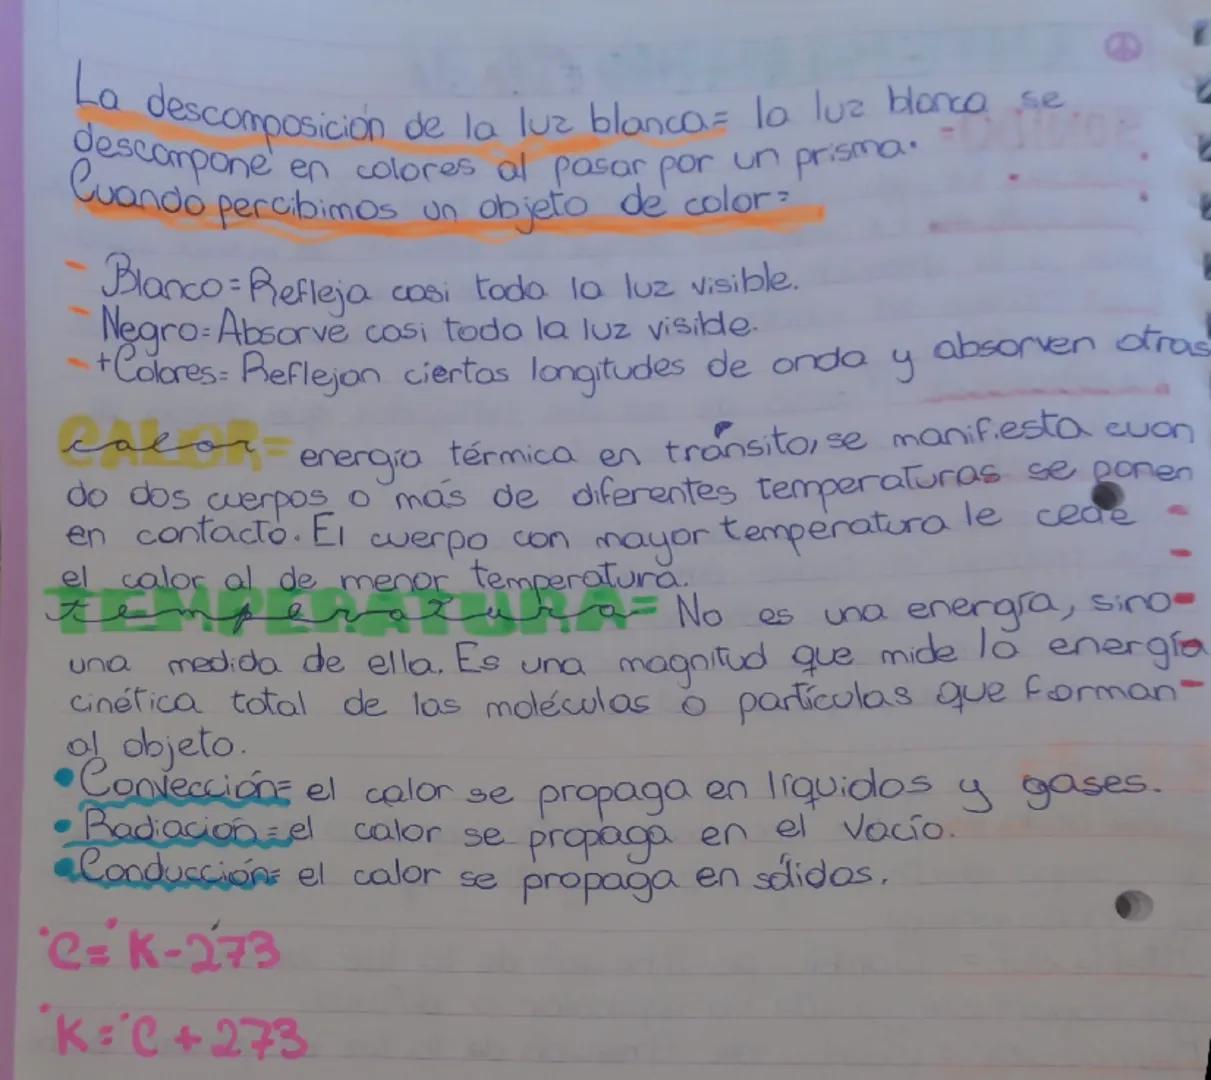 La descomposición de la luz blanca= la luz blanca se
descompone en colores al pasar por un prisma.
Cuando percibimos un objeto de color=
- Blanco=Refleja casi toda la luz visible.
- Negro=Absorve casi toda la luz visible.
- +Colores= Reflejan ciertas longitudes de onda y absorven otras
CALOR= energía térmica en tránsito, se manifiesta cuan
do dos cuerpos o más de diferentes temperaturas se ponen
en contacto. El cuerpo con mayor temperatura le cede
el calor al de menor temperatura.
TEMPERATURA= No es una energía, sino
una medida de ella. Es una magnitud que mide la energía
cinética total de las moléculas o partículas que forman
al objeto.
•Convección= el calor se propaga en líquidos y gases.
•Radiación=el calor se propaga en el vacío.
•Conducción= el calor se propaga en sólidos.
°C=°K-273
°K=°C+273